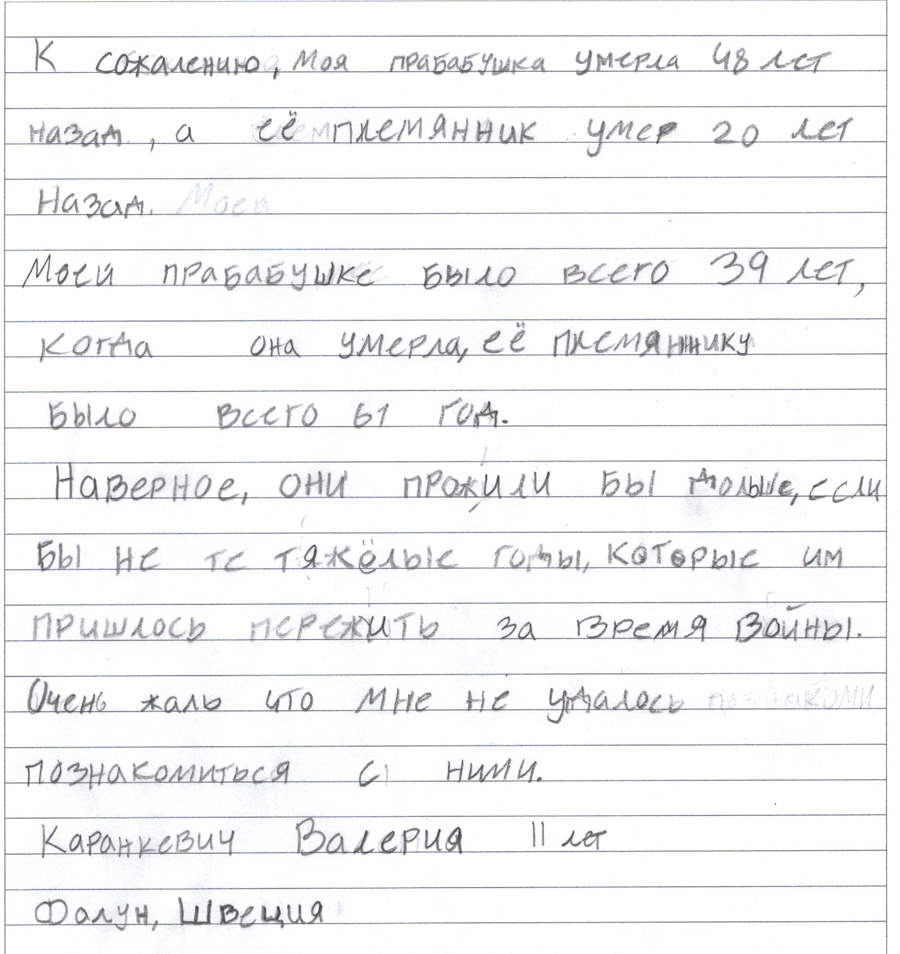 К сожалению, Моя прабабушка умерла 48 лет
назад, а её племянник умер 20 лет
Назад.
Моей прабабушке было всего 39 лет,
когда она умерла, её племяннику
было всего 61 год.
Наверное, они прожили бы дольше, если
бы не те тяжёлые годы, которые им
пришлось пережить за время войны.
Очень жаль что мне не удалось
познакомиться с ними.
Каранкевич Валерия 11 лет
Фалун, Швеция